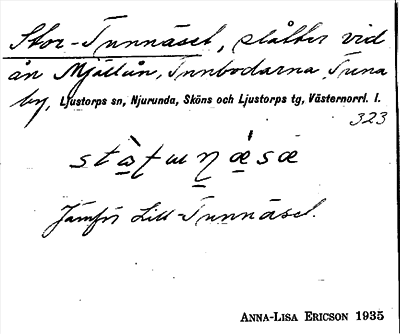 Stor-Tunnäset, slåtter vid
ån Mjällån, Tunbodarna, Tuna
by, Ljustorps sn, Njurunda, Sköns och Ljustorps tg, Västernorrl. l.
323
Jämför Lill-Tunnäset.
ANNA-LISA ERICSON 1935